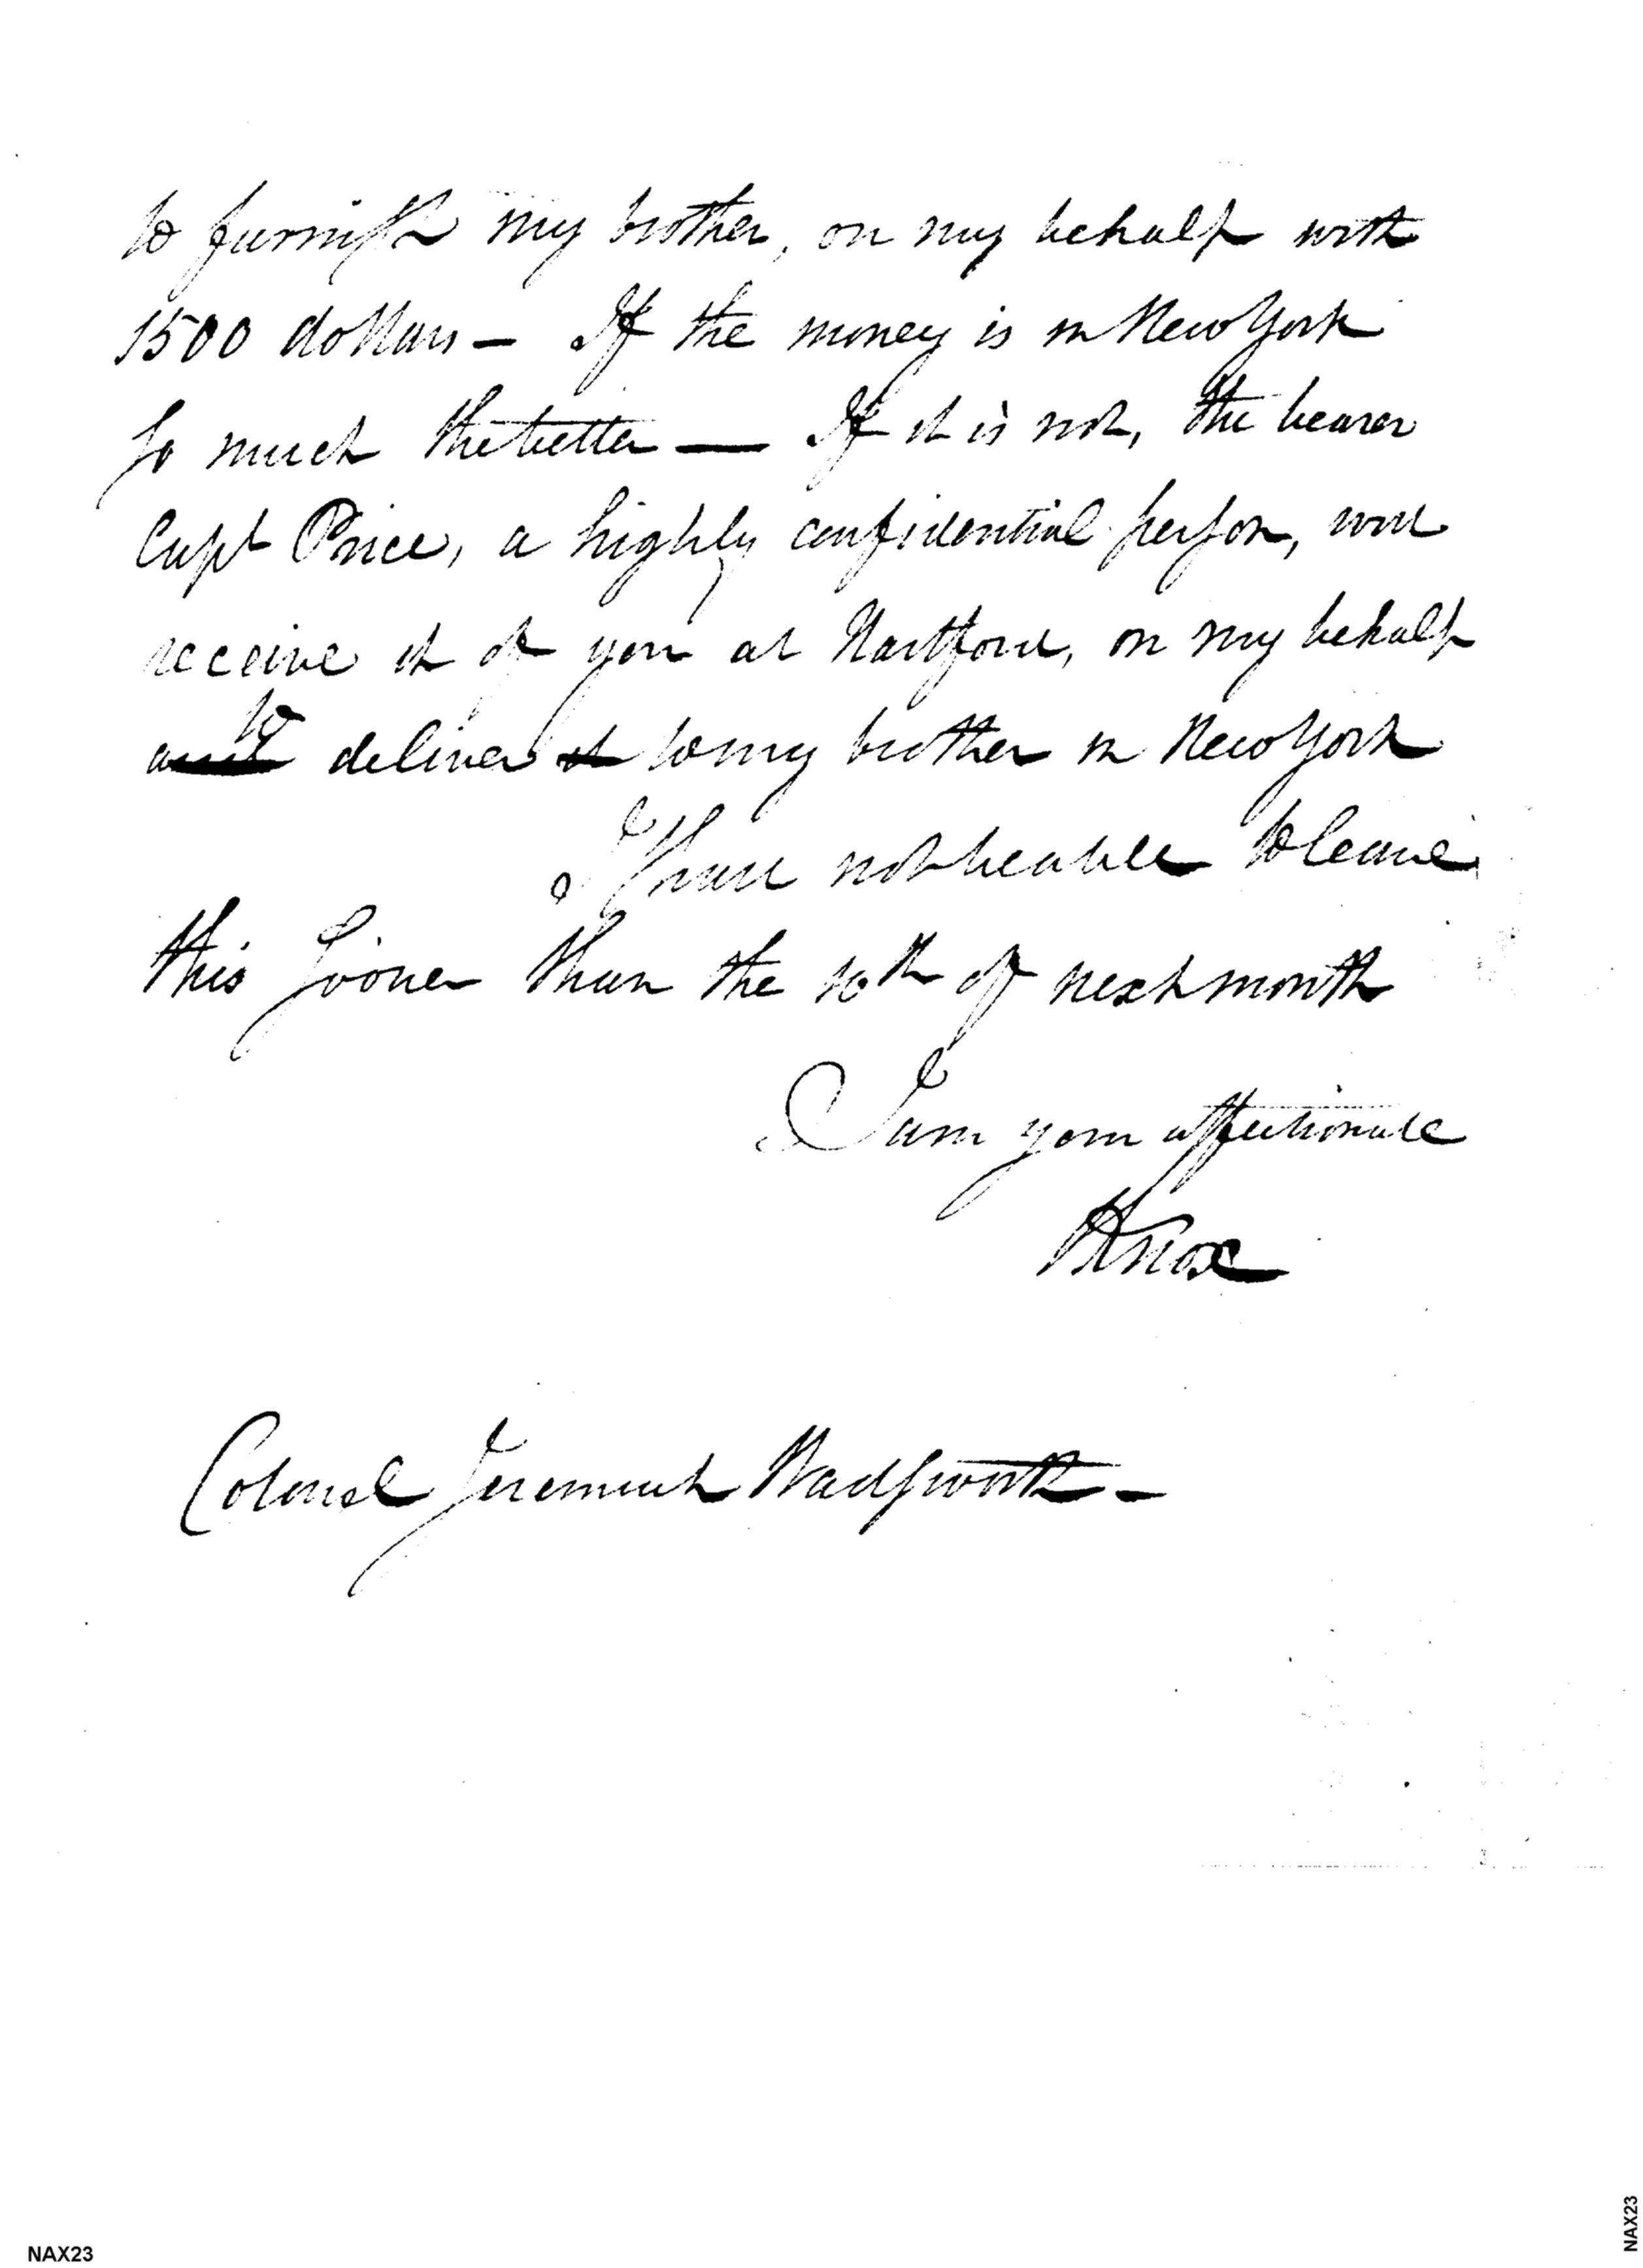 to furnish my brother, on my behalf with
1500 dollars — If the money is in New York
so much the better — If it is not, the bearer
Capt Price, a highly confidential person, will
receive it of you at Hartford, on my behalf
to
and deliver it to my brother in New York
I shall not be able to leave
this sooner than the 10th of next month
I am your affectionate
HKnox
Colonel Jeremiah Wadsworth —
NAX23
NAX23